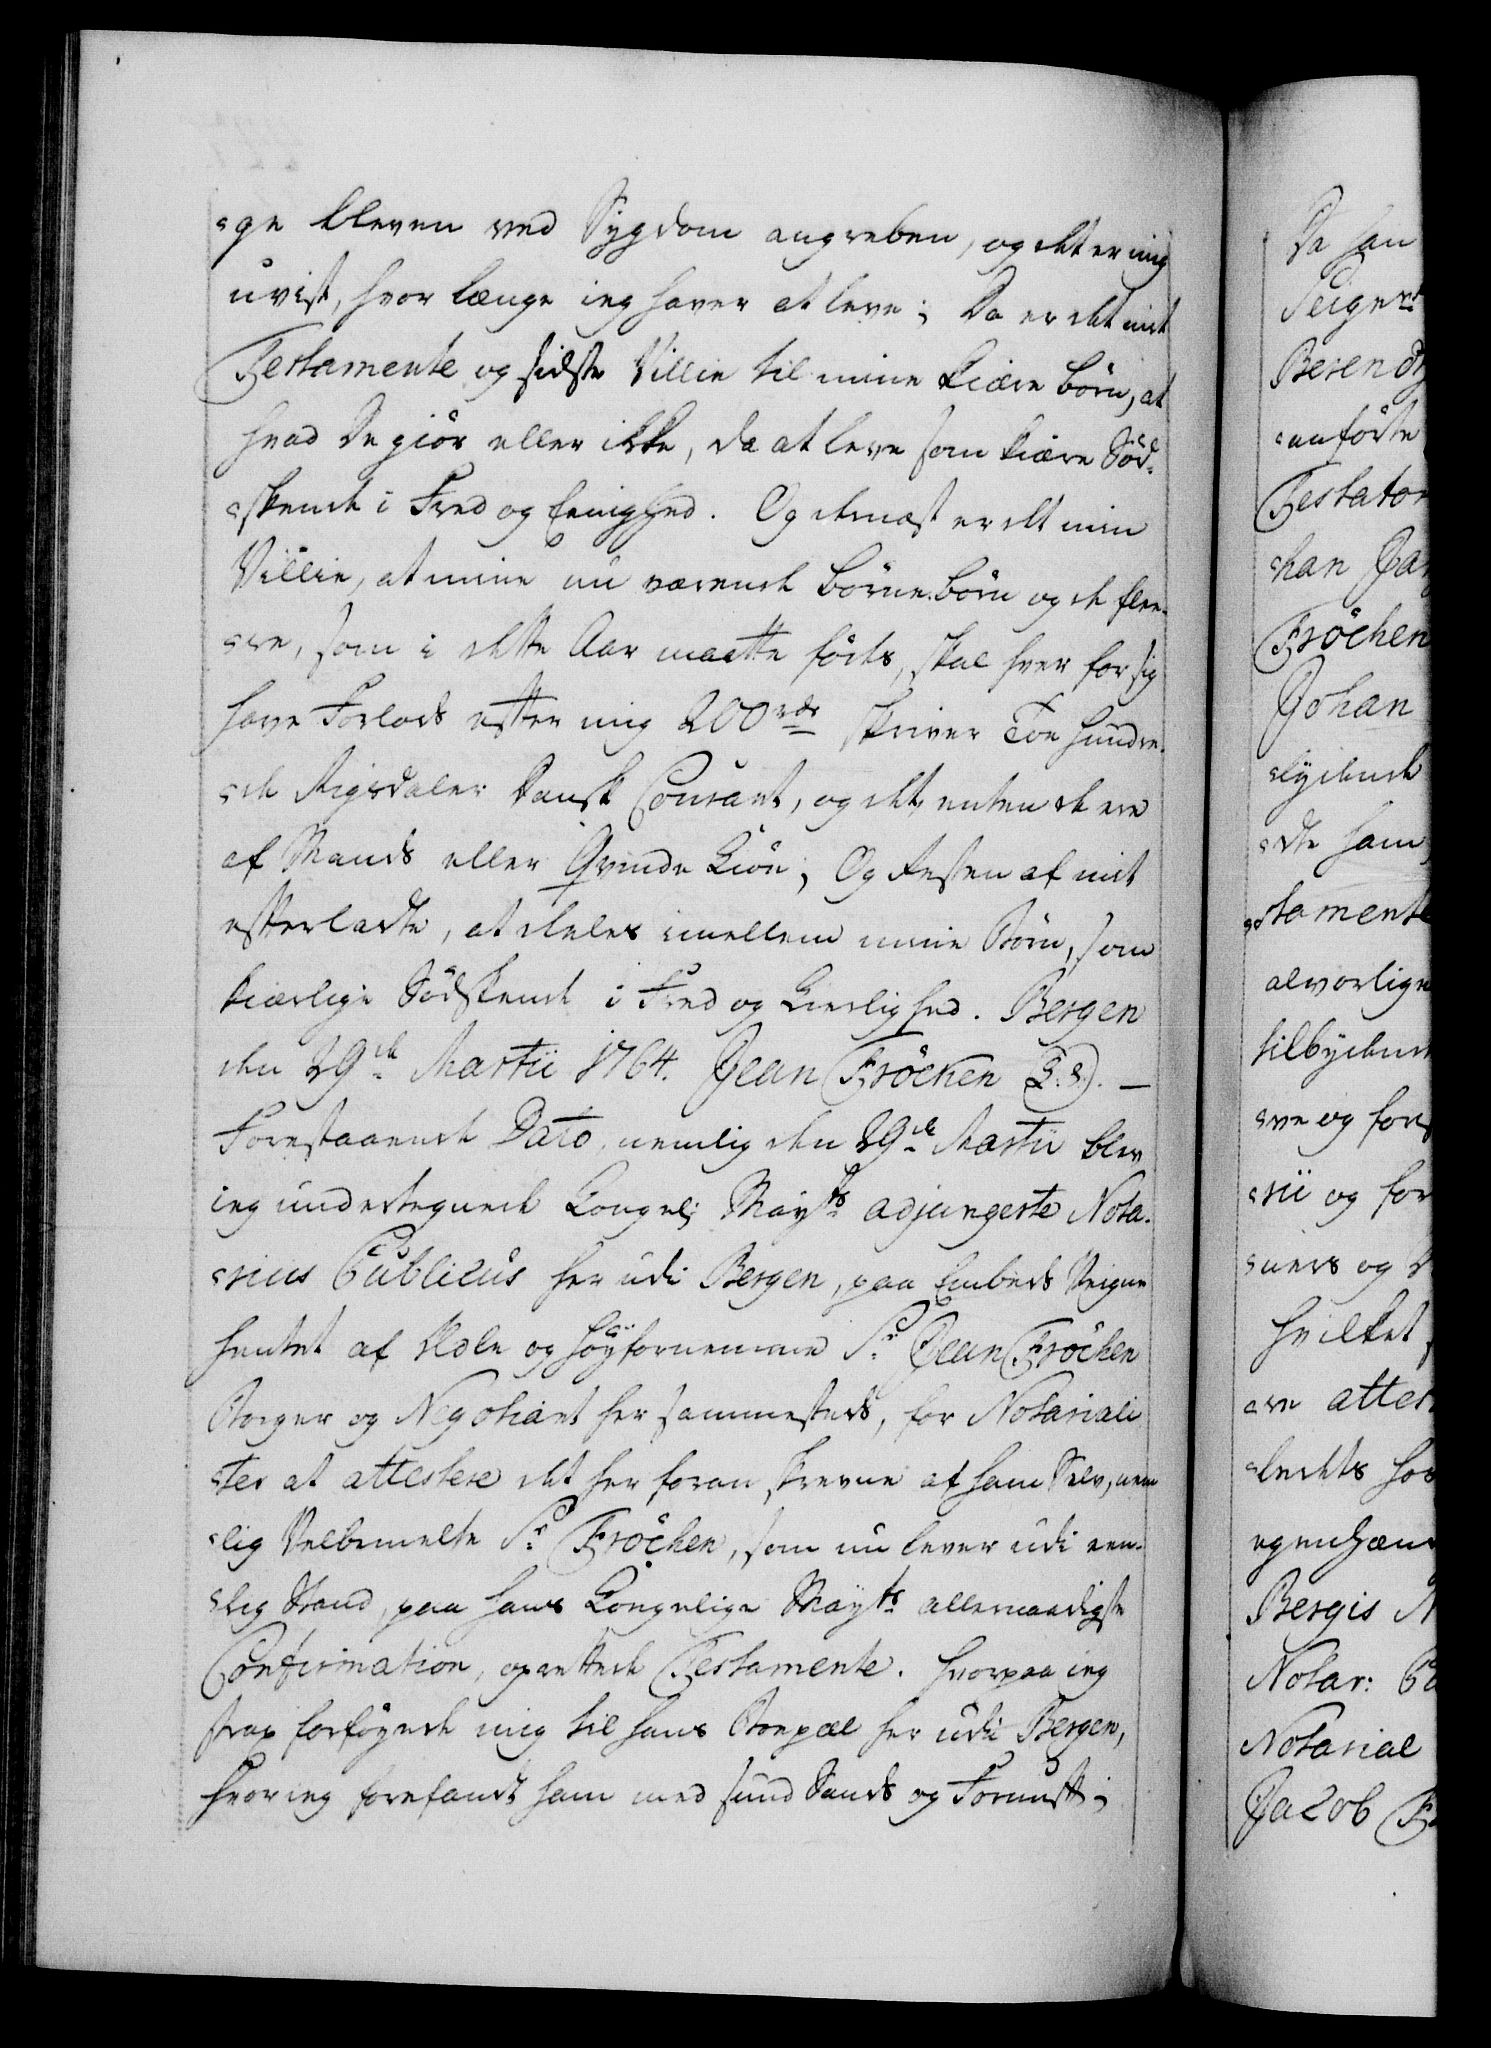 ge bleven ved Sygdom angreben, og det er mig
uvist, hvor længe ieg haver at leve; Da er det mit
Testamente og sidste Villie til mine kiære børn, at
hvad De giør eller ikke, da at leve som kiære Sød-
skende i Fred og Eenighed. Og dernæst er det min
Villie, at mine nu værende børne-børn og de flee-
re, som i dette Aar maatte fødes, skal hver for sig
have Forlods efter mig 200 rdr skriver Toe hundre-
de Rigsdaler Dansk Courant, og det enten de ere
af Mands eller Qvinde Kiøn; Og Resten af mit
efterladte, at deeles imellem mine Børn, som
kiærlige Sødskende i Fred og Kierlighed. Bergen
den 29de Martii 1764. Jean Frøchen (L. S.). —
Forestaaende Dato, nemlig den 29de Martii blev
ieg undertegnede Kongel: Mayts adjungerte Nota-
rius Publicus her udi Bergen, paa Embeds Veigne
hentet af Ædle og Høyfornemme Sr Jean Frøchen
Borger og Negotiant her sammesteds, for Notariali
ter at attestere det her foran skrevne af ham Selv, nem
lig Velbemelte Sr Frøchen, som nu lever udi een-
lig Stand, paa hans Kongelige Mayts allernaadigste
Confirmation, oprettede Testamente. Hvorpaa ieg
strax forføyede mig til hans Boepæl her udi Bergen,
hvor ieg forefandt ham med sund Sands og Fornuft;
De han
Peigert
Berend
anførte
Testator
han Ja
Frøchen
Johan
lydende
dte ham
stamente
alvorlige
tilbydende
ve og for
rii og for
ners og
hvilket
re attes
ledets hos
egenhæn
Bergis N
Notar: Pu
Notarial
Jacob F